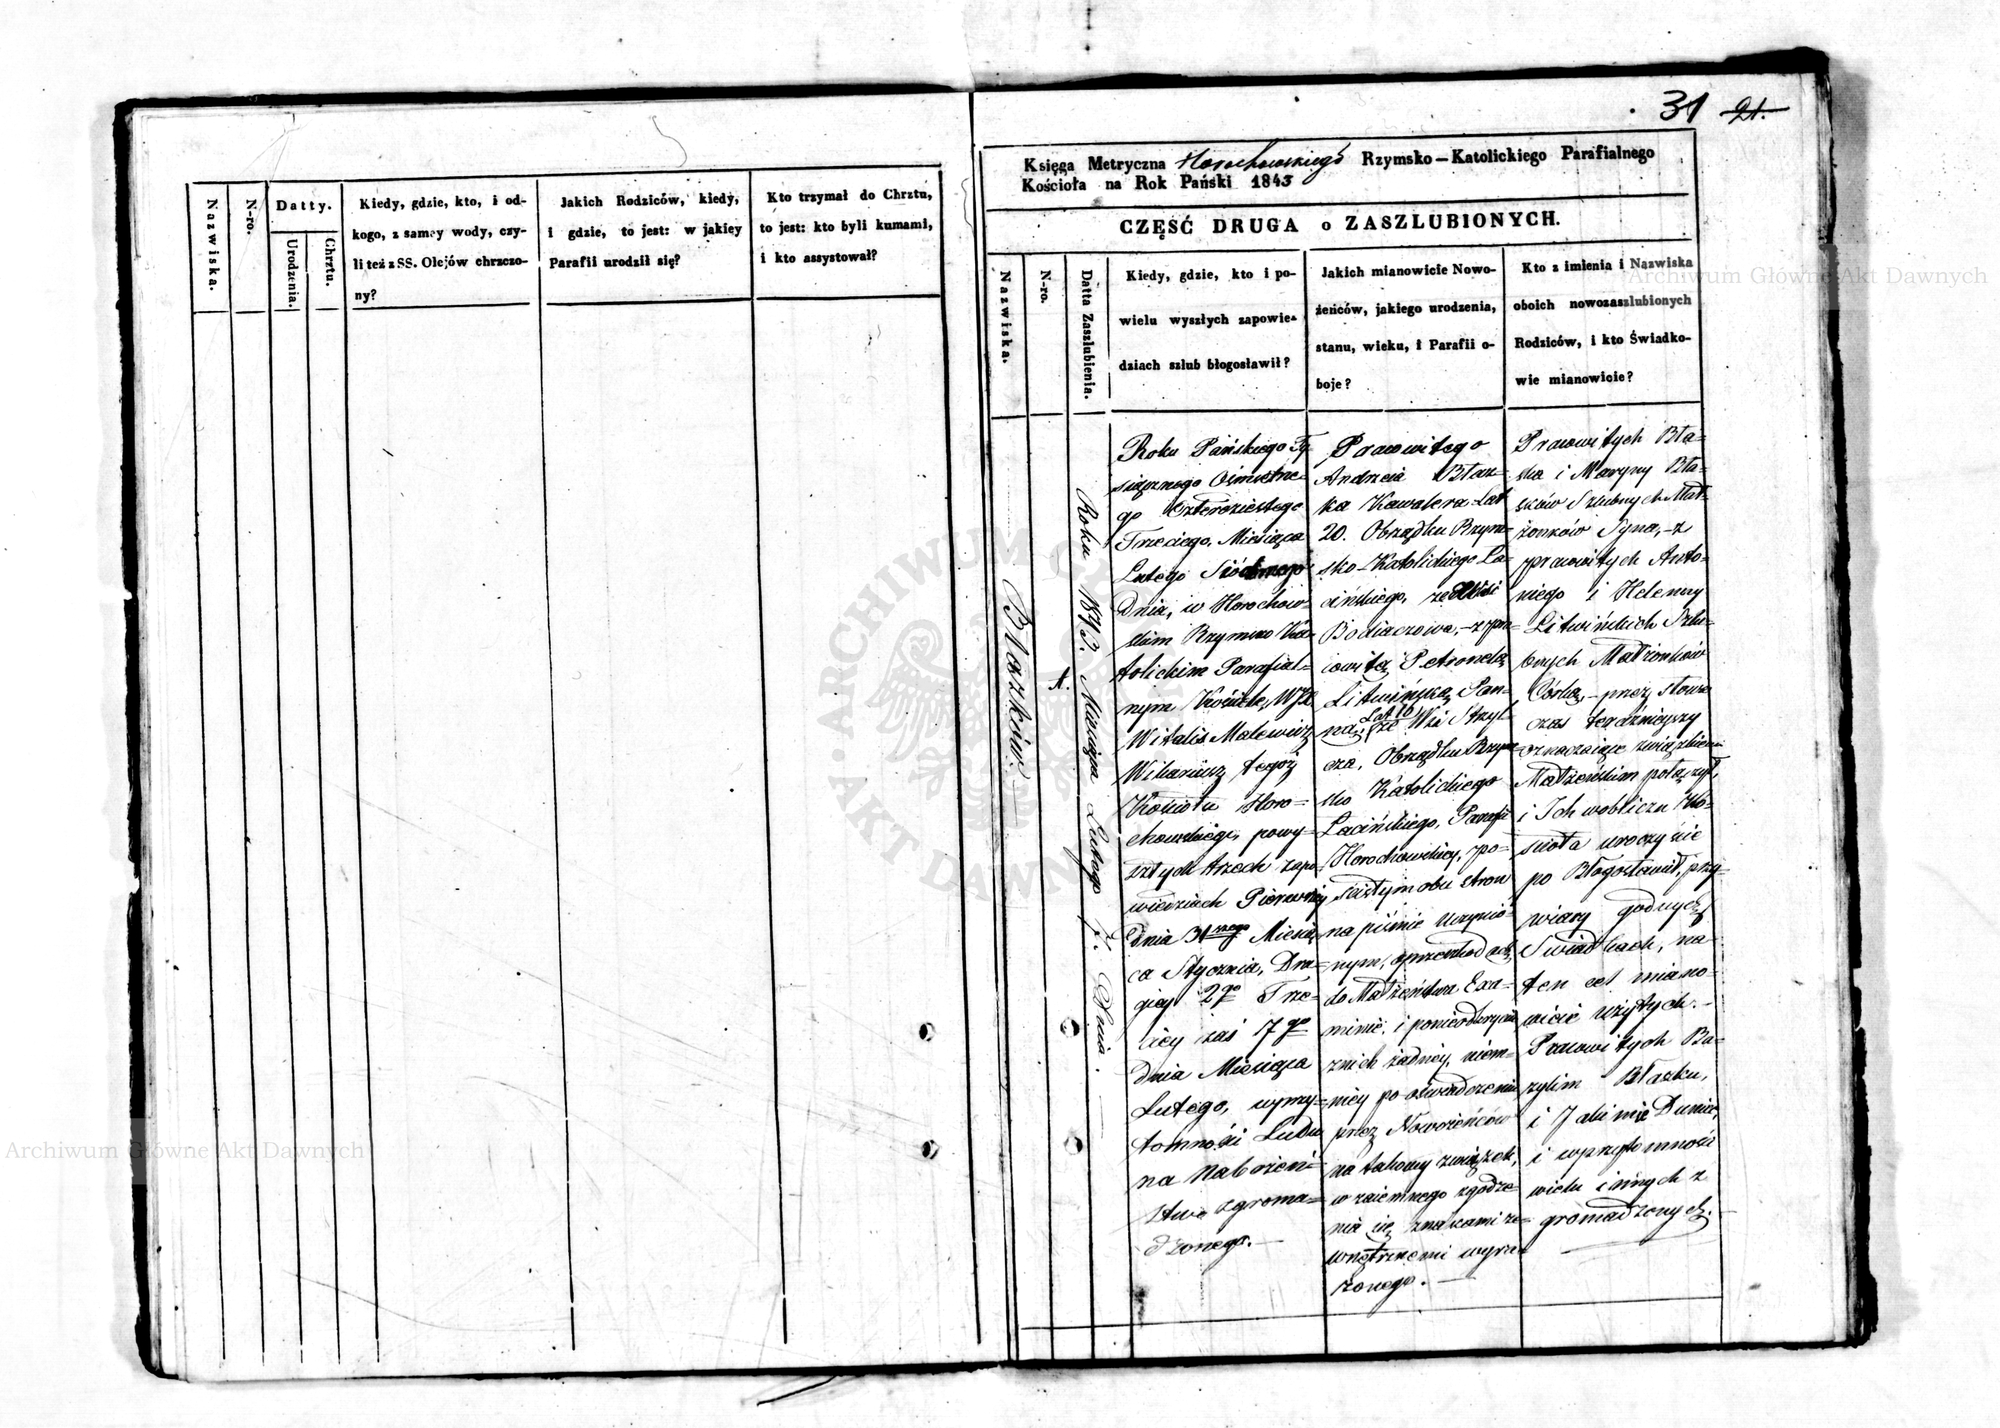 31 21.
Nazwiska.
N-ro.
Datty.
Urodzenia.
Chrztu.
Kiedy, gdzie, kto, i od-
kogo, z samey wody, czy-
li też z SS. Olejów chrzczo-
ny?
Jakich Rodziców, kiedy,
i gdzie, to jest: w jakiey
Parafii urodził się?
Kto trzymał do Chrztu,
to jest: kto byli kumami,
i kto assystował?
Księga Metryczna Horochowskiego Rzymsko-Katolickiego Parafialnego
Kościoła na Rok Pański 1843
CZĘŚĆ DRUGA o ZASZLUBIONYCH.
Nazwiska.
N-ro.
Datta Zaszlubienia.
Kiedy, gdzie, kto i po-
wielu wyszłych zapowie-
dziach szlub błogosławił?
Jakich mianowicie Nowo-
żeńców, jakiego urodzenia,
stanu, wieku, i Parafii o-
boje?
Kto z imienia i Nazwiska
oboich nowozaszlubionych
Rodziców, i kto Świadko-
wie mianowicie?
Błazków
1.
Roku 1843. Miesiąca Lutego 7. Dnia.
Roku Pańskiego Ty-
siącznego Ośmsetne-
go Czterdziestego
Trzeciego, Miesiąca
Lutego Siódmego
Dnia, w Horochow-
skim Rzymsko Ka-
tolickim Parafial-
nym Kościele, WJX
Witalis Malewicz
Wikariusz tegoż
Kościoła Horo-
chowskiego, powy-
szłych trzech zapo-
wiedziach Pierwszej
Dnia 31 Miesią-
ca Stycznia, Dru-
giej 2go Trze-
ciej zaś 17go
Dnia Miesiąca
Lutego, wprzy-
tomności Ludu
na Nabożeń-
stwo zgroma-
dzonego.
Pracowitego
Andrzeia Błaz-
ka Kawalera Lat
20. Obrządku Rzym-
sko-Katolickiego Ła-
cińskiego, ze Wsi
Bodiaczowa, - z pra-
cowitą Petronelą
Litwińską Pan-
ną, Lat 16 ze Wsi Strzyl-
cza, Obrządku Rzym-
sko Katolickiego
Łacińskiego, Parafii
Horochowskiej, po-
Szłym obu stron
na piśmie uczynio-
nym, o przeszkodach,
do Małżeństwa Exa-
minie, i po nieodkryciu
znich żadney, niem-
niey po oświadczeniu
przez Nowożeńców
na takowy związek,
wzaiemnego zgodze-
nia się znakami ze-
wnętrznemi wyra-
żonego.
Pracowitych Bła-
ska i Maryny Bła-
zków Szlubnych Mał-
żonków Syna, - z
pracowitych Anto-
niego i Heleny
Litwińskich Szlu-
bnych Małżonków
Córką, - przez słowa
czas teraźnieyszy
oznaczające związkiem
Małżeńskim połączył,
i Ich wobliczu Ko-
ścioła uroczyście
po Błogosławił, przy
wiary godnych
Świadkach, na
ten cel miano-
wicie użytych. -
Pracowitych Ba-
zylim Błazku,
i Jakimie Dunicz,
i wprzytomności
wielu innych z
gromadzonych.
ARCHIWUM GŁÓWNE AKT DAWNYCH
Archiwum Główne Akt Dawnych
Archiwum Główne Akt Dawnych